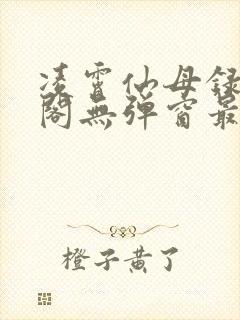 凌霄仙母録
閣無彈窗最
橙子黄了